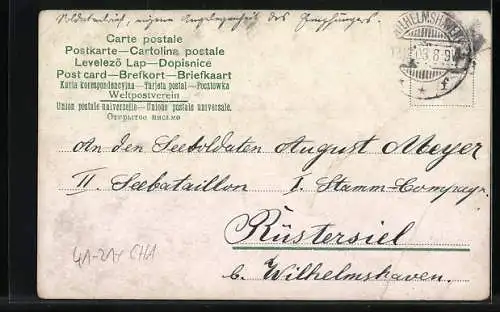 Soldatenbrief, eigene Angelegenheit des Empfängers.
Carte postale
Postkarte — Cartolina postale
Levelező Lap — Dopisnice
Post card — Brefkort — Briefkaart
Karta korespondencyjna — Tarjeta postal — Pocztówka
Weltpostverein
Union postale universelle — Unione postale universale.
Открытое письмо
WILHELMSHAVEN
An den Seesoldaten August Meyer
II. Seebataillon I. Stamm-Compag.
Rüstersiel
b. Wilhelmshaven.